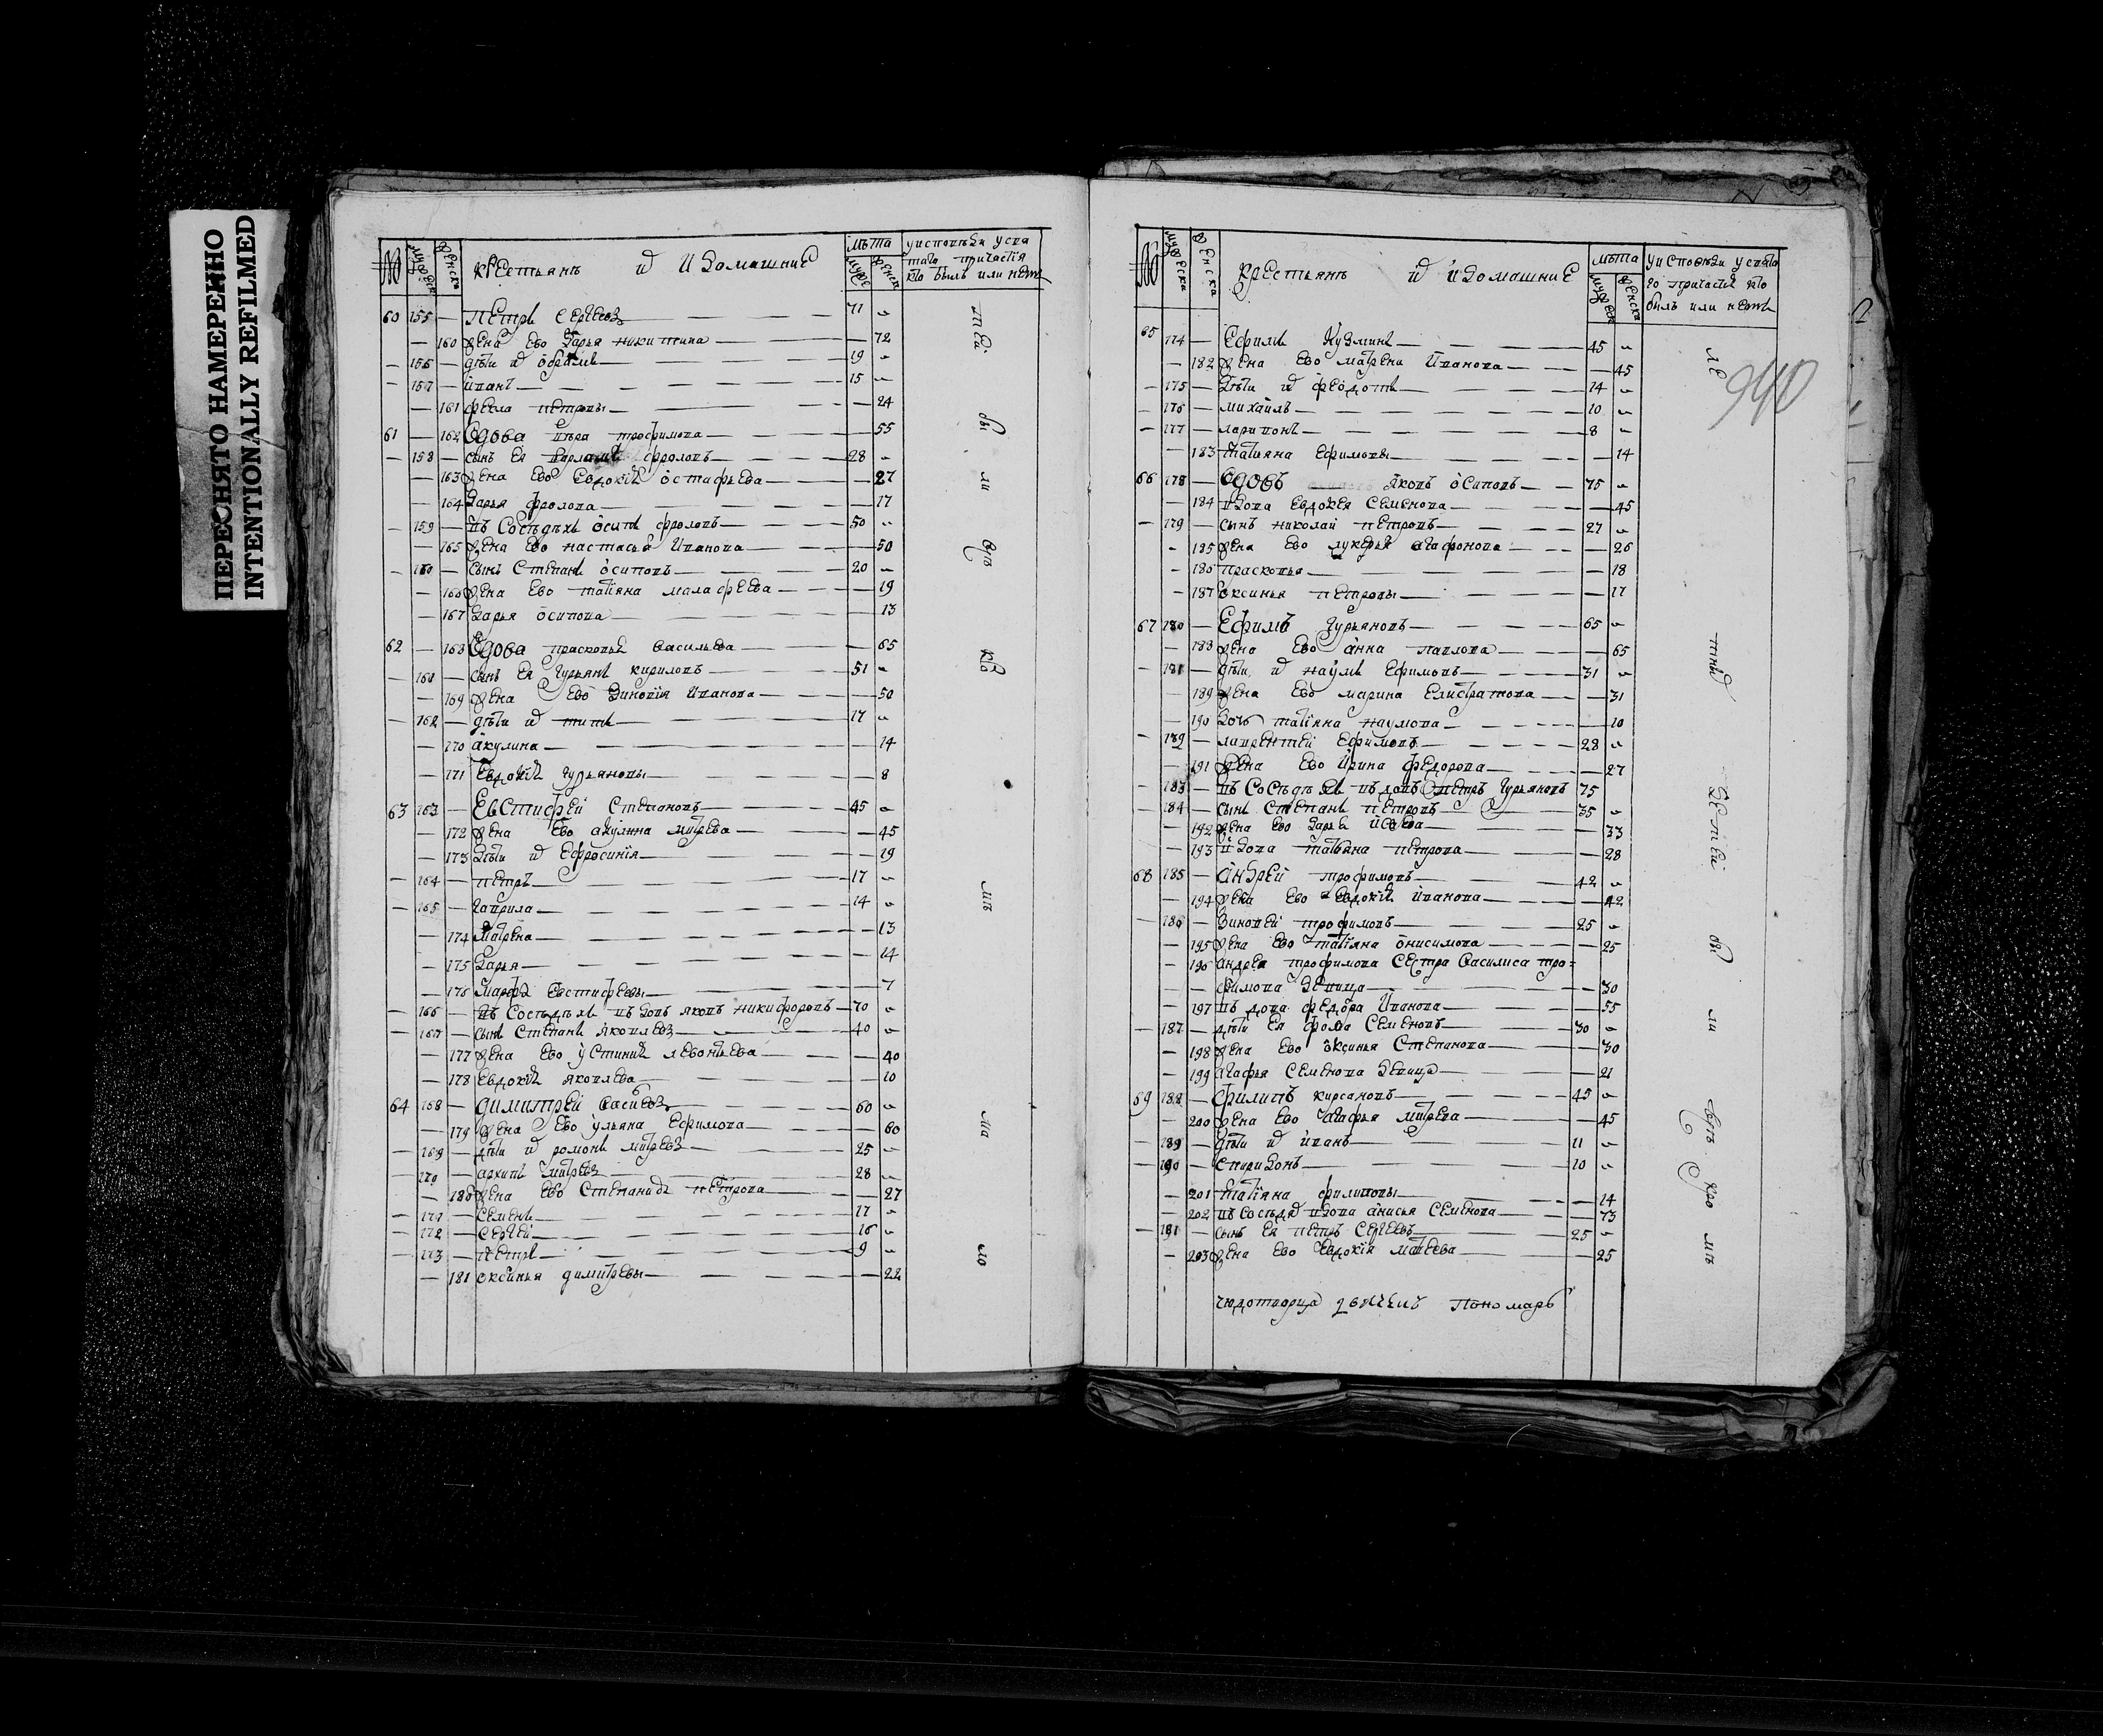 ПЕРЕСНЯТО НАМЕРЕННО
INTENTIONALLY REFILMED
№ мужеска женска крестьянъ и ихъ домашние лѣта мужес женск у исповѣди у свя
таго причастія
кто былъ или нетъ
60 155 — Петръ Сергеевъ 71
— 160 жена ево Дарья никитина — 72
— 156 — дѣти их обрамъ 19
— 157 — иванъ 15
— 161 фекла петровы — 24
61 — 162 вдова вѣра трофимова — 55
— 158 — сынъ ея фроловъ 28
— 163 жена ево Евдокія остафьева — 27
— 164 Дарья фролова — 17
— 159 — въ Сосѣдѣхъ осипъ фроловъ 50
— 165 жена ево настасья иванова — 50
— 160 — сынъ Степанъ осиповъ 20
— 166 жена ево татіяна малафеева — 19
— 167 Дарья осипова — 13
62 — 168 вдова прасковья васильева — 65
— 161 — сынъ ея гурьянъ кириловъ 51
— 169 жена ево Зиновія иванова — 50
— 162 — дѣти их титъ 17
— 170 акулина — 14
— 171 Евдокія гурьяновы — 8
63 163 — Евстифей Степановъ 45
— 172 жена ево акулина митрева — 45
— 173 дѣти их Ефросинія — 19
— 164 — петръ 17
— 165 — гаврила 14
— 174 Матрена — 13
— 175 Дарья — 14
— 176 Марфа Евстифеевы — 7
— 166 — въ Сосѣдѣхъ вдовъ яковъ никифоровъ 70
— 167 — сынъ Степанъ яковлевъ 40
— 177 жена ево устинія левонтьева — 40
— 178 Евдокія яковлева — 10
64 168 — Димитрей васильевъ 60
— 179 жена ево ульяна Ефимова — 60
— 169 — дѣти их романъ митревъ 25
— 170 — архипъ митревъ 28
— 180 жена ево Степанида петрова — 27
— 171 — Семенъ 17
— 172 — Сергей 16
— 173 — Петръ 9
— 181 оксинья димитревы — 22
№ мужеска женска крестьянъ и ихъ домашние лѣта мужеск женска у исповѣди у свята
го причастія кто
былъ или нетъ
940
65 174 — Ефимъ Кузминъ 45
— 182 жена ево матрена иванова — 45
— 175 — дѣти их федотъ 14
— 176 — михайлъ 10
— 177 — ларионъ 8
— 183 татьяна Ефимовы — 14
66 178 — вдовъ яковъ осиповъ 75
— 184 вдова Евдокея Семенова — 45
— 179 — сынъ николай петровъ 27
— 185 жена ево лукерья агафонова — 26
— 186 прасковья — 18
— 187 оксинья петровы — 17
67 180 — Ефимъ гурьяновъ 65
— 188 жена ево анна павлова — 65
— 181 — дѣти их наумъ Ефимовъ 31
— 189 жена ево марина Елистратова — 31
— 190 дочь татіяна наумова — 10
— 182 — лаврентей Ефимовъ 28
— 191 жена ево ирина федорова — 27
— 183 — въ Сосѣдѣхъ вдовъ петръ гурьяновъ 75
— 184 — сынъ Степанъ петровъ 35
— 192 жена ево Дарья — 33
— 193 вдова татьяна петрова — 28
68 185 — андрей трофимовъ 42
— 194 жена ево Евдокія иванова — 42
— 186 — Зиновей трофимовъ 25
— 195 жена ево татіяна онисимова — 25
— 196 андрея трофимова сестра василиса тро=
фимова девица — 30
— 197 вдова федора иванова — 55
— 187 — дѣти ея фома Семеновъ 30
— 198 жена ево оксинья Степанова — 30
— 199 агафья Семенова девица — 21
69 188 — Филипъ кирсановъ 45
— 200 жена ево агафья митрева — 45
— 189 — дѣти их иванъ 11
— 190 — спиридонъ 10
— 201 татіяна филиповы — 14
— 202 въ сосѣдях вдова анисья Семенова — 73
— 191 — сынъ ея петръ Сергеевъ 25
— 203 жена ево Евдокія матвева — 25
чюдотворца пономарь